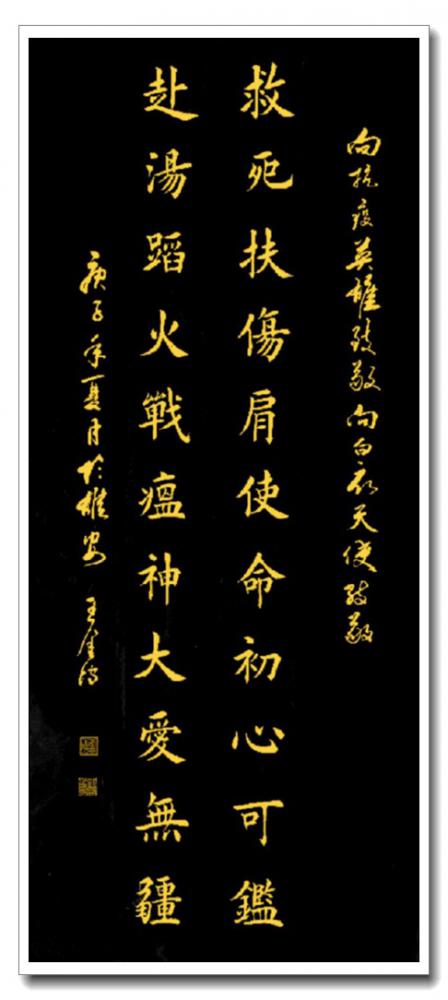 向抗疫英雄致敬向白衣天使致敬
救死扶傷肩使命初心可鑑
赴湯蹈火戰瘟神大愛無疆
庚子年夏月於雄安 王金